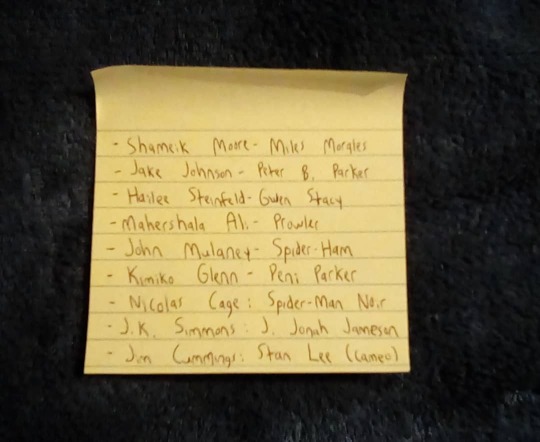 - Shameik Moore - Miles Morales
- Jake Johnson - Peter B. Parker
- Hailee Steinfeld - Gwen Stacy
- Mahershala Ali - Prowler
- John Mulaney - Spider-Ham
- Kimiko Glenn - Peni Parker
- Nicolas Cage: Spider-Man Noir
- J.K. Simmons: J. Jonah Jameson
- Jim Cummings: Stan Lee (cameo)